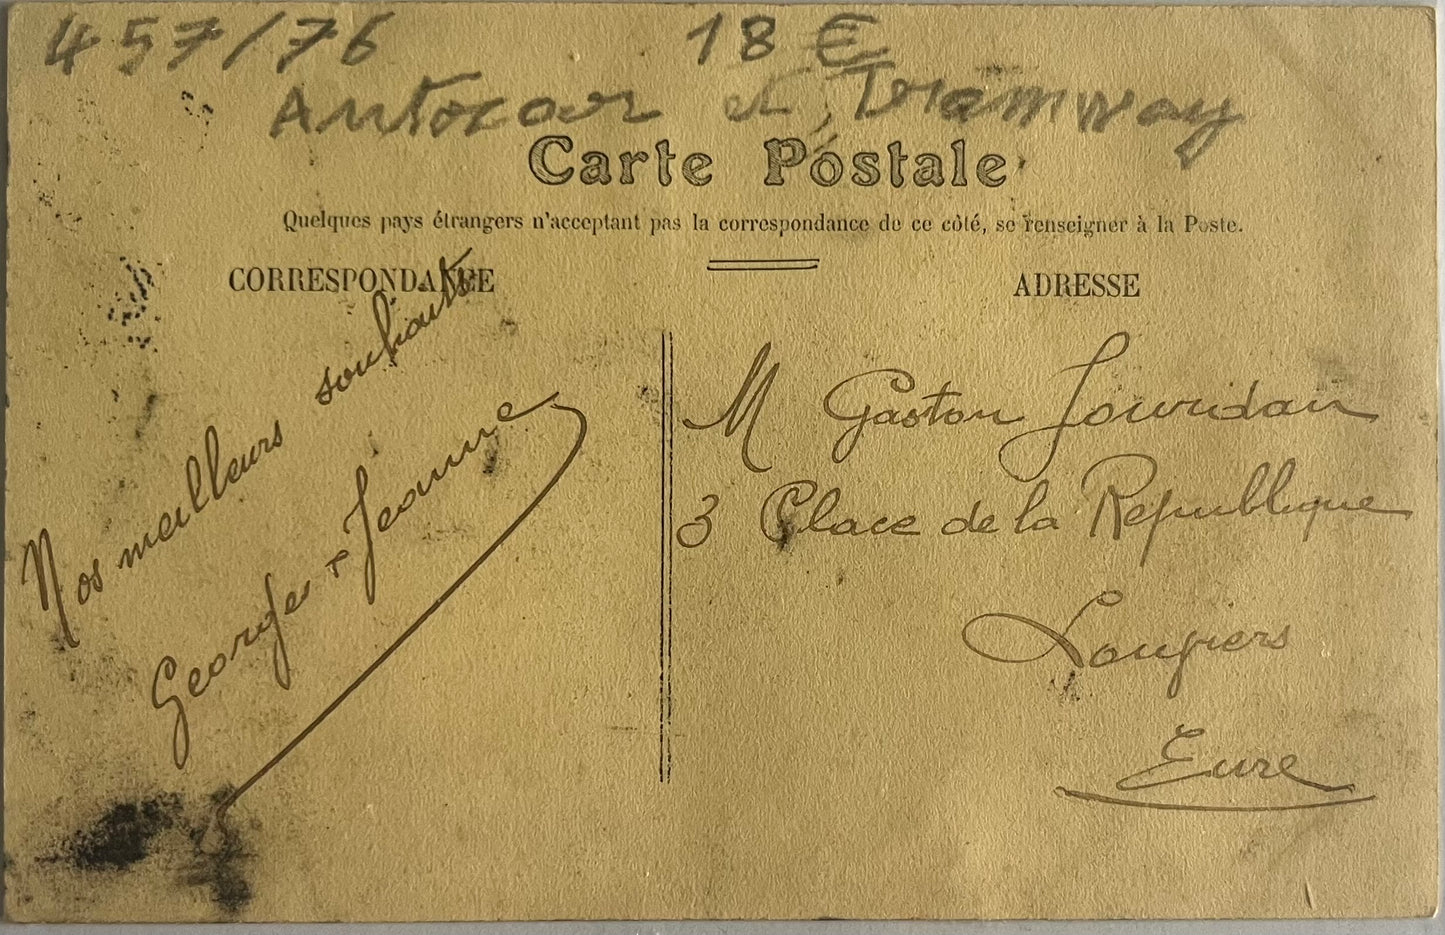 457/76 18 €
Autocar et Tramway
Carte Postale
Quelques pays étrangers n'acceptant pas la correspondance de ce côté, se renseigner à la Poste.
CORRESPONDANCE
Nos meilleurs souhaits
Georges & Jeanne
ADRESSE
M Gaston Jourdain
3 Place de la République
Louviers
Eure